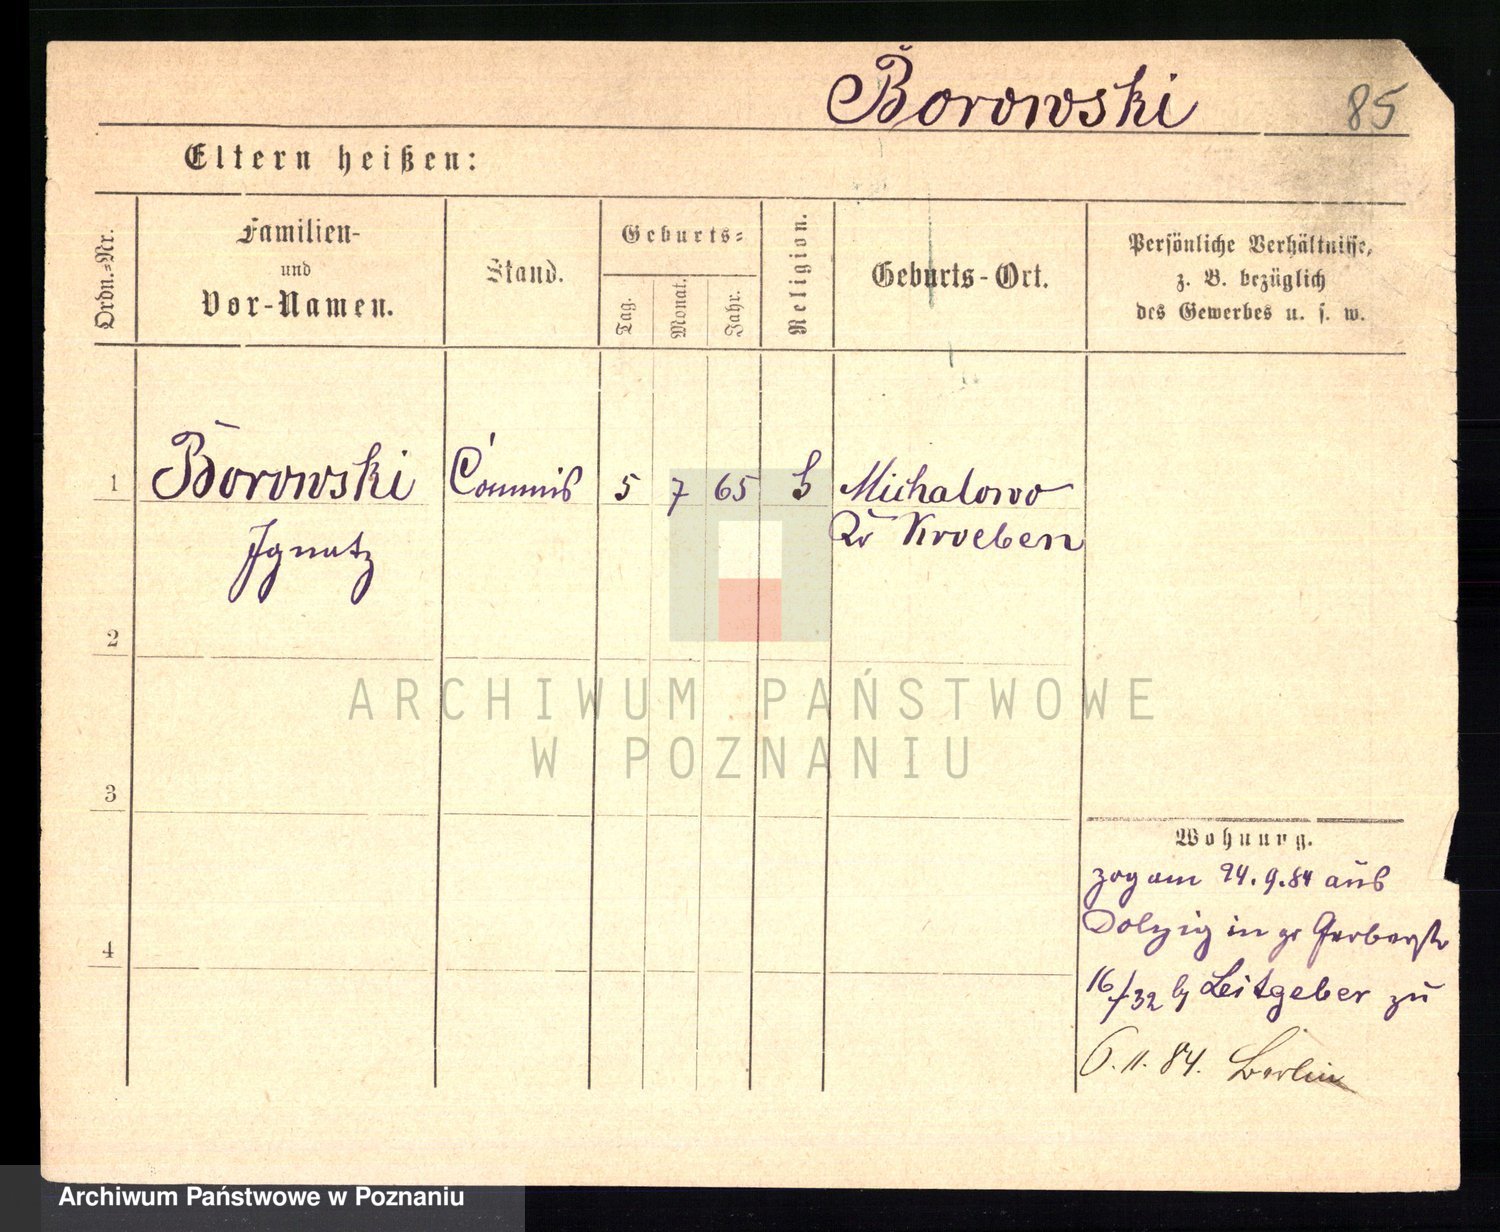 Borowski
85
Eltern heißen:
Ordn.=Nr.
Familien-
und
Vor-Namen.
Stand.
Geburts=
Tag.
Monat.
Jahr.
Religion.
Geburts-Ort.
Persönliche Verhältnisse,
z. B. bezüglich
des Gewerbes u. s. w.
1
Borowski
Commis
5
7
65
Michalowo
Ignatz
Kr Kroeben
2
ARCHIWUM PAŃSTWOWE
W POZNANIU
3
Wohnung.
zog am 24.9.84 aus
Dolzig in gr Gerberstr
4
16/32 bj Leitgeber zu
6.11.84. Berlin
Archiwum Państwowe w Poznaniu